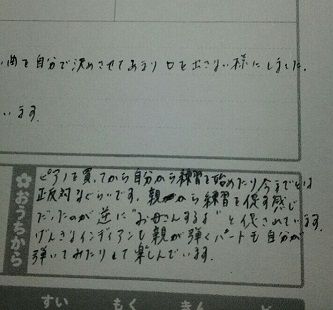 い曲を自分で決めさせてあまり口を出さない様にしました。
います。
おうちから
ピアノを買ってから自分から練習を始めたり今までとは
正反対なくらいです。親から練習を促す感じ
だったのが逆に"お母さんするよ"と促されています。
げんきなインディアンも親が弾くパートも自分が
弾いてみたりして楽しんでいます。
すい もく きん ど